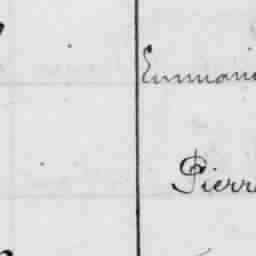 Emmani
Pierr